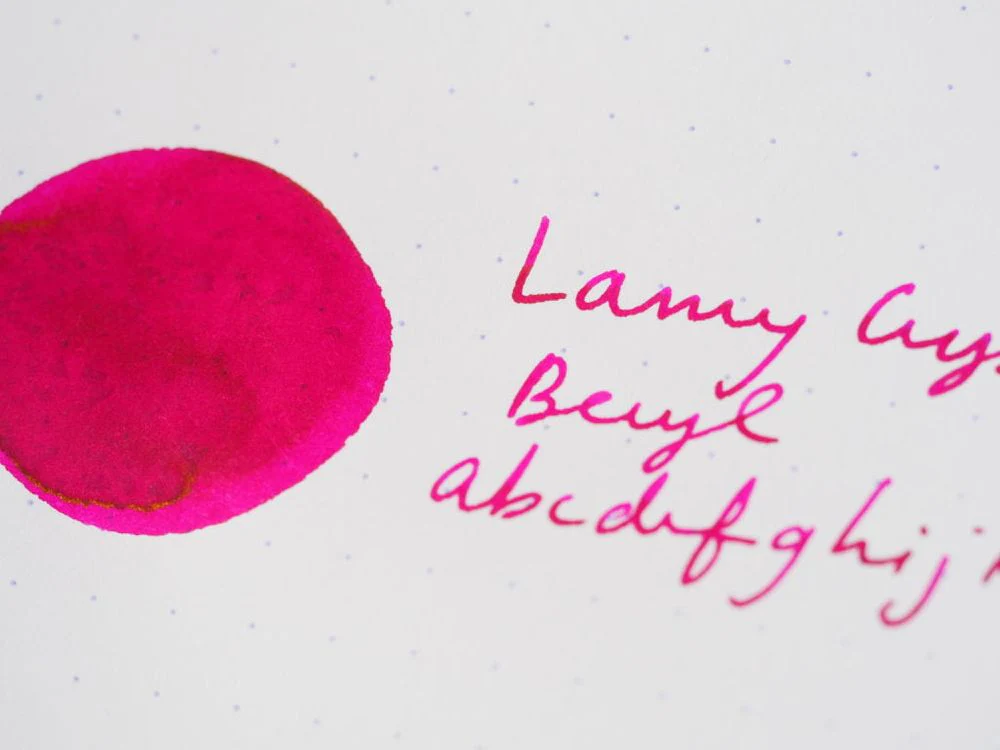 Lamy Crys
Beryl
abcdefghij